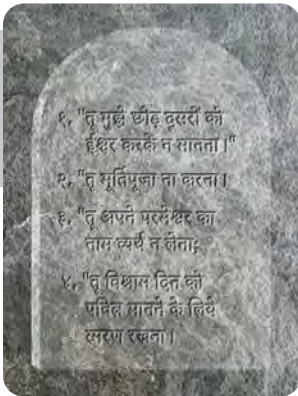 १. "तू मुझे छोड़ दूसरों को
ईश्वर करके न मानना।"
२. "तू मूर्तिपूजा ना करना।
३. "तू अपने परमेश्वर का
नाम व्यर्थ न लेना;
४. "तू विश्राम दिन को
पवित्र मानने के लिये
स्मरण रखना।